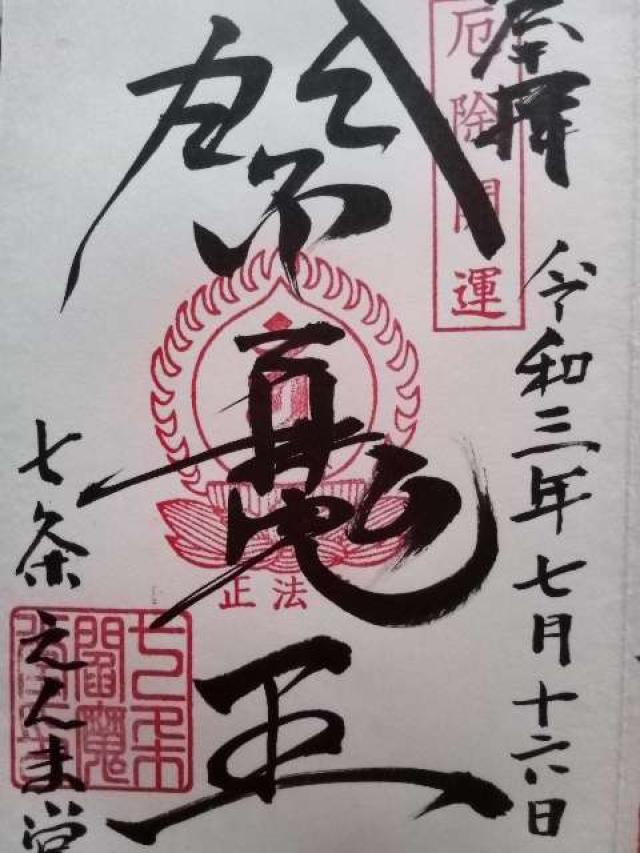 奉拝
令和三年七月十六日
厄除開運
王
正法
七条えんま堂
七条
閻魔